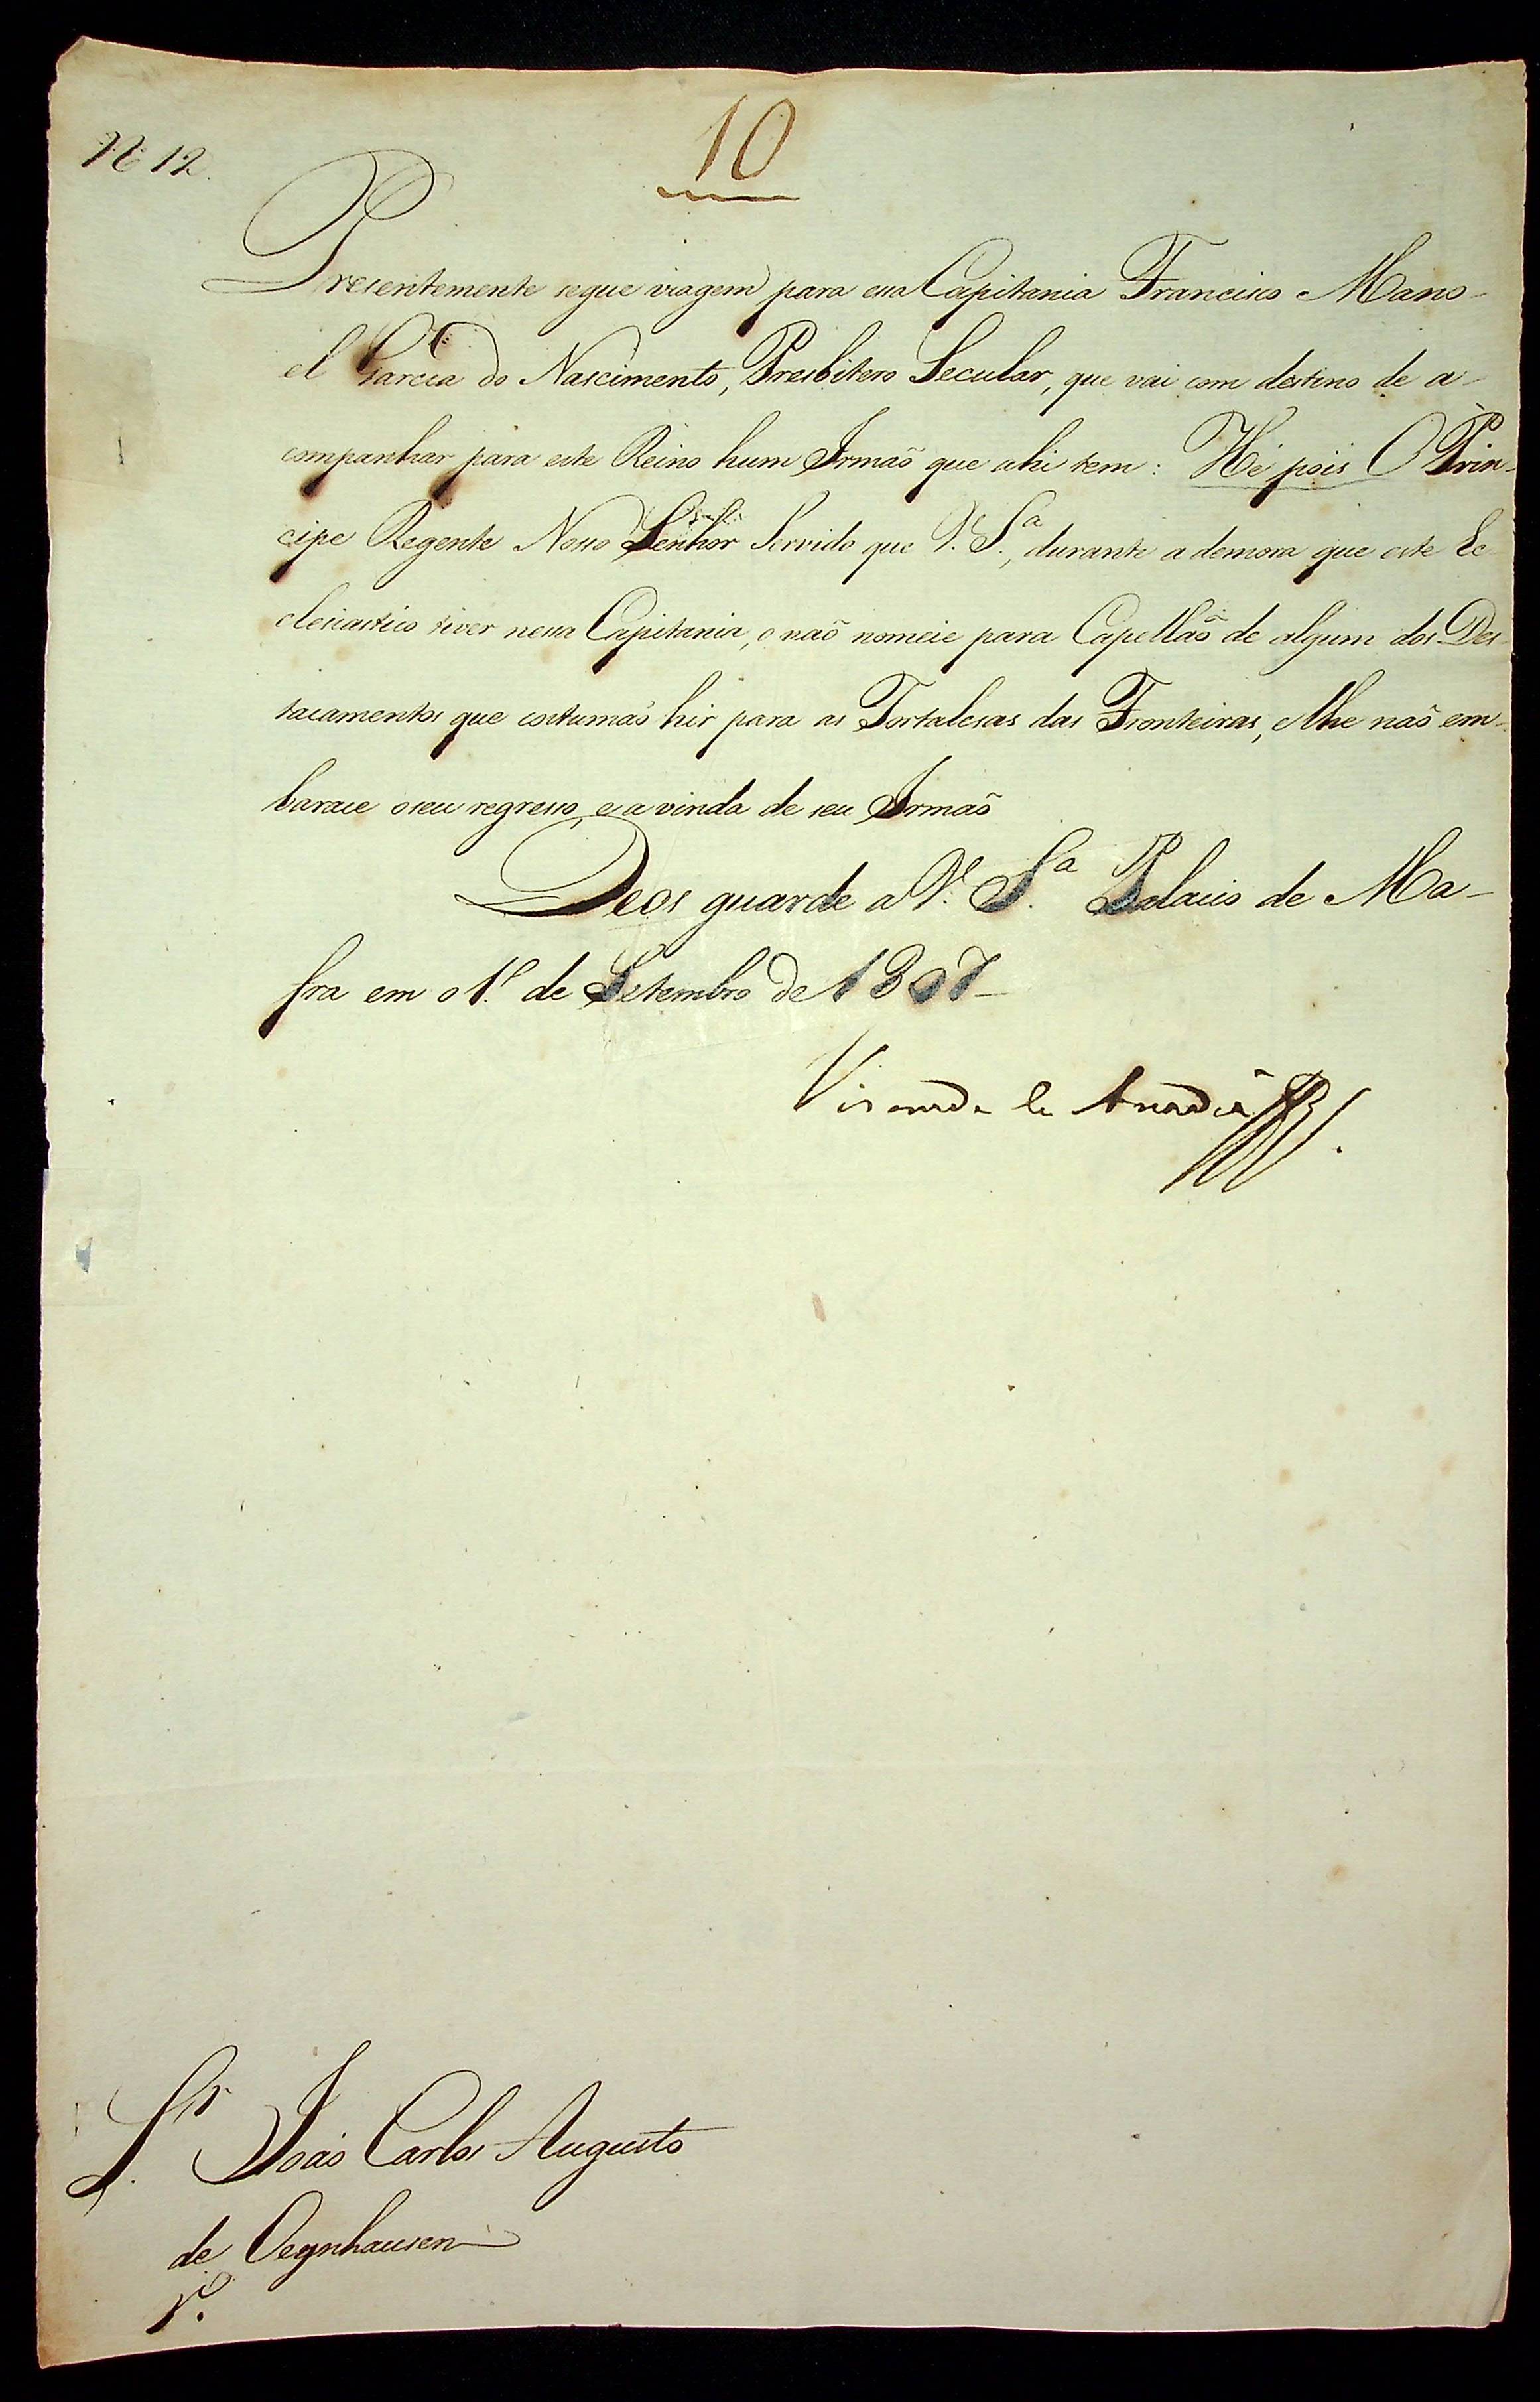 10
Nº 12.
Presentemente segue viagem para essa Capitania Francisco Mano-
el Garcia do Nascimento, Presbitero Secular, que vai com destino de a-
companhar para este Reino hum Irmaõ que ahi tem: Hé pois O Prin-
cipe Regente Nosso Senhor Servido que V. S.ª, durante a demora que este Ec
clesiastico tiver nessa Capitania, o naõ nomeie para Capellaõ de algum dos Des-
tacamentos que costumaõ hir para as Fortalesas das Fronteiras, e lhe naõ em-
barace o seu regresso, e a vinda de seu Irmaõ
Deos guarde a V. S.ª Palacio de Ma-
fra em o 1.º de Setembro de 1807
Visconde de Anadia
Sr. Joaõ Carlos Augusto
de Oeynhausen